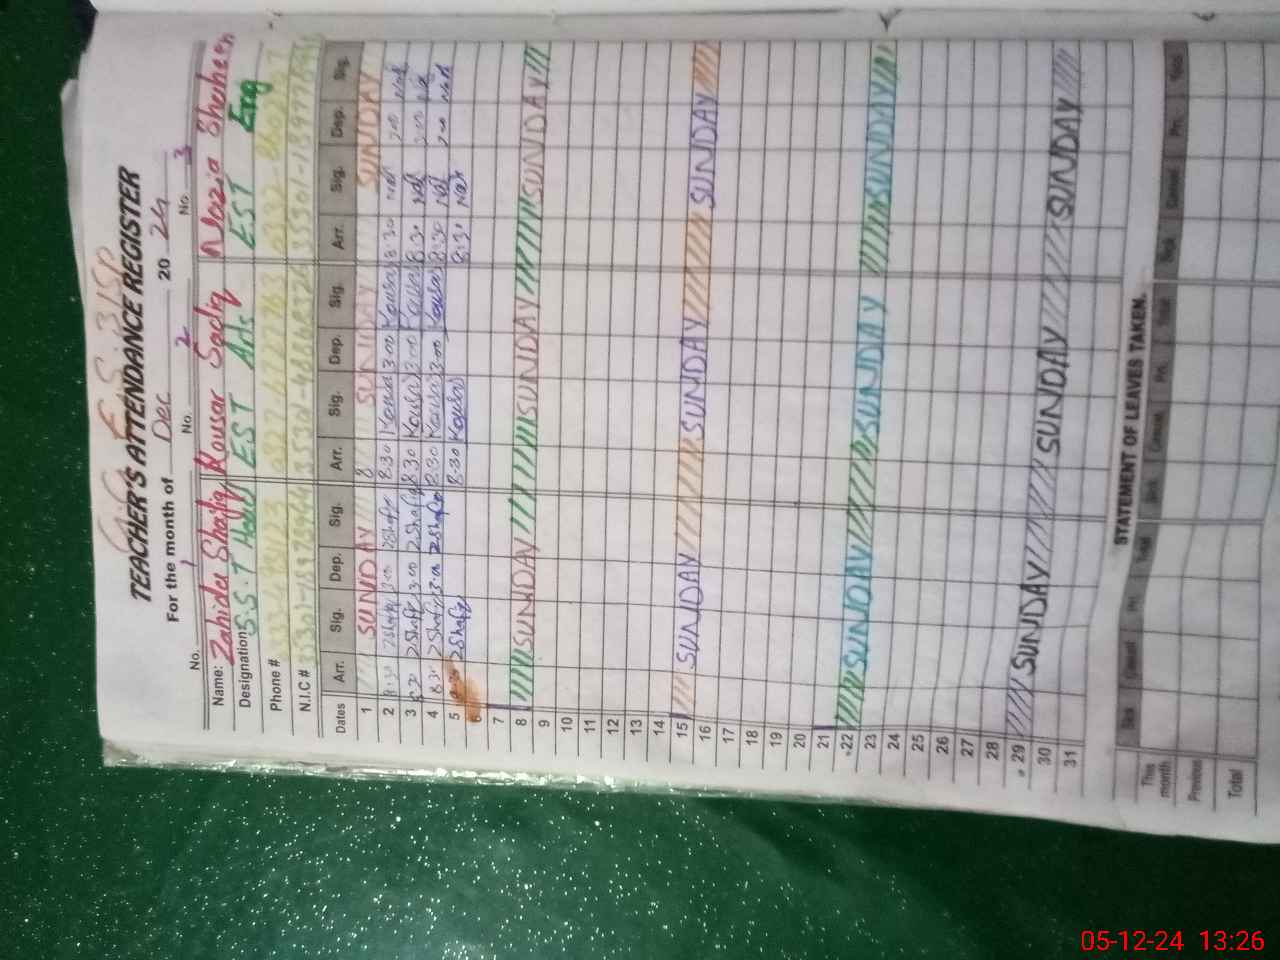 TEACHER'S ATTENDANCE REGISTER
For the month of Dec 20 24
No. 1 No. 2 No. 3
Name: Zahida Shafiq Kousar Sadiq Nazia Shaheen
Designation: S.S.T EST Arts EST Eng
Phone #
N.I.C #
Dates Arr. Sig. Dep. Sig. Arr. Sig. Dep. Sig. Arr. Sig. Dep. Sig.
1 SUNDAY 8 SUNDAY SUNDAY
2 8.30 ZShafiq 3.00 ZShafiq 8.30 Kousar 3.00 Kousar 8.30 Naz 3.00 Naz
3 8.30 ZShafiq 3.00 ZShafiq 8.30 Kousar 3.00 Kousar 8.30 Naz 3.00 Naz
4 8.30 ZShafiq 3.00 ZShafiq 8.30 Kousar 3.00 Kousar 8.30 Naz 3.00 Naz
5 8.30 ZShafiq 8.30 Kousar 8.30 Naz
6
7
8 SUNDAY SUNDAY SUNDAY
9
10
11
12
13
14
15 SUNDAY SUNDAY SUNDAY
16
17
18
19
20
21
22 SUNDAY SUNDAY SUNDAY
23
24
25
26
27
28
29 SUNDAY SUNDAY SUNDAY
30
31
STATEMENT OF LEAVES TAKEN.
Sick Casual Pri. Total Sick Casual Pri. Total Sick Casual Pri. Total
This month
Previous
Total
05-12-24 13:26